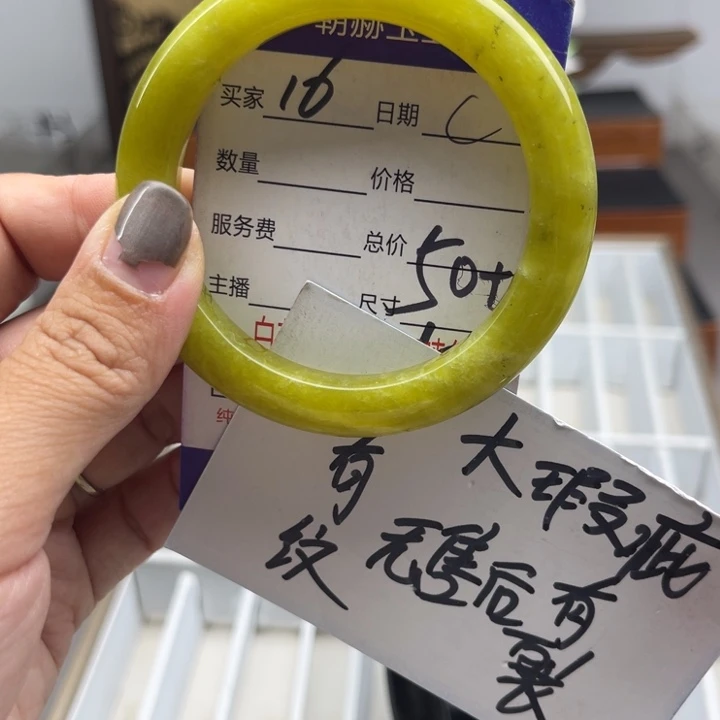 买家 16 日期
数量 价格
服务费 总价 50+
主播 尺寸
白
纯
有 大瑕疵
纹 无售后有
裂